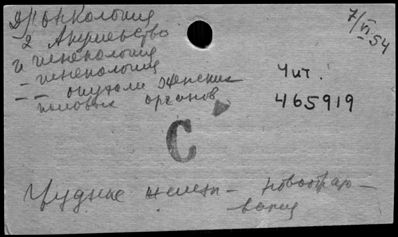 2) Онкология
2 Акушерство
и гинекология
— гинекология
— — опухоли женских
половых органов
7/VI 54
Чит.
465919
С
Грудные желез — новообра-
вания